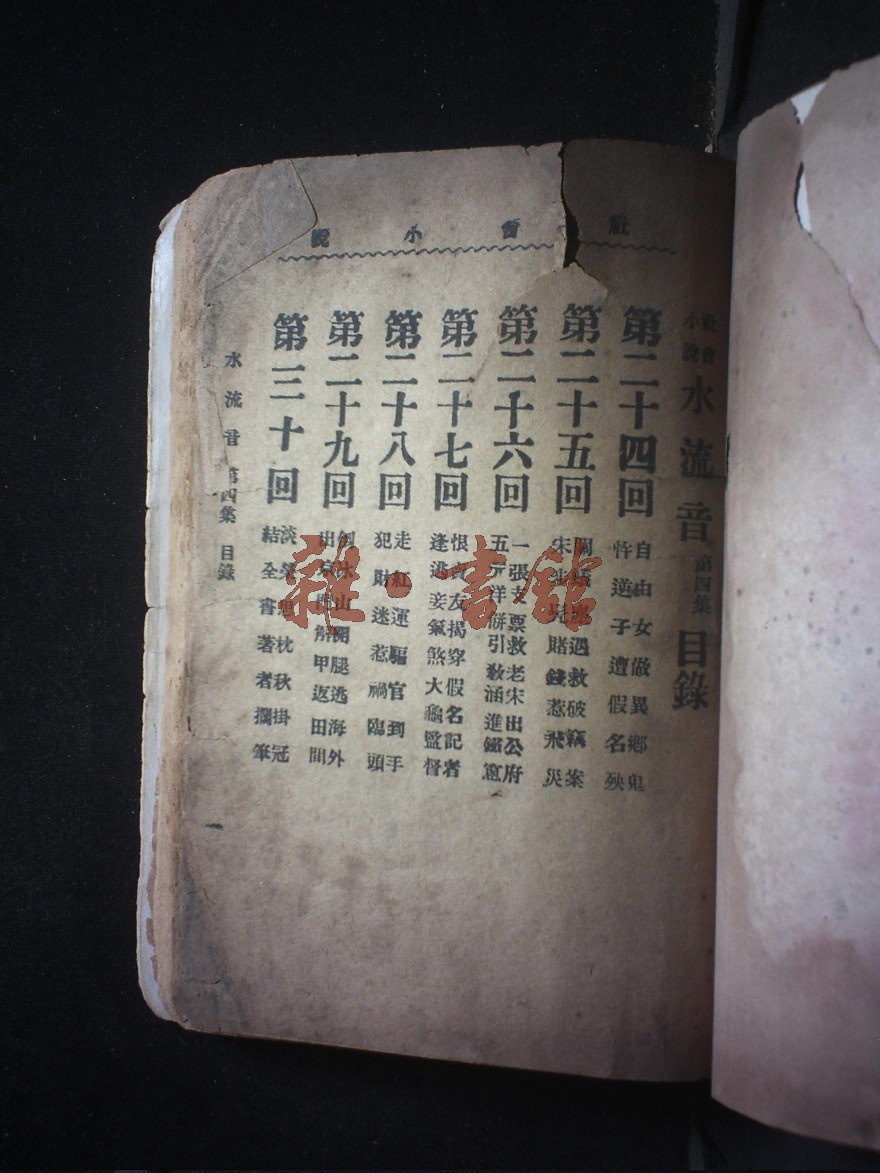 社會小說
社會小說 水流音 第四集 目錄
第二十四回 自由女做異鄉鬼
忤逆子遭假名殃
第二十五回 遇救破竊案
宋 賭錢惹飛災
第二十六回 一張支票救老宋出公府
五千洋餅引敎涵進鐵窗
第二十七回 恨賣友揭穿假名記者
逢逃妾氣煞大龜監督
第二十八回 走紅運驅官到手
犯財迷惹禍臨頭
第二十九回 山開腿逃海外
出 解甲返田間
第三十回 淡 思枕秋掛冠
結全書著者擱筆
水流音 第四集 目錄
雜·書館